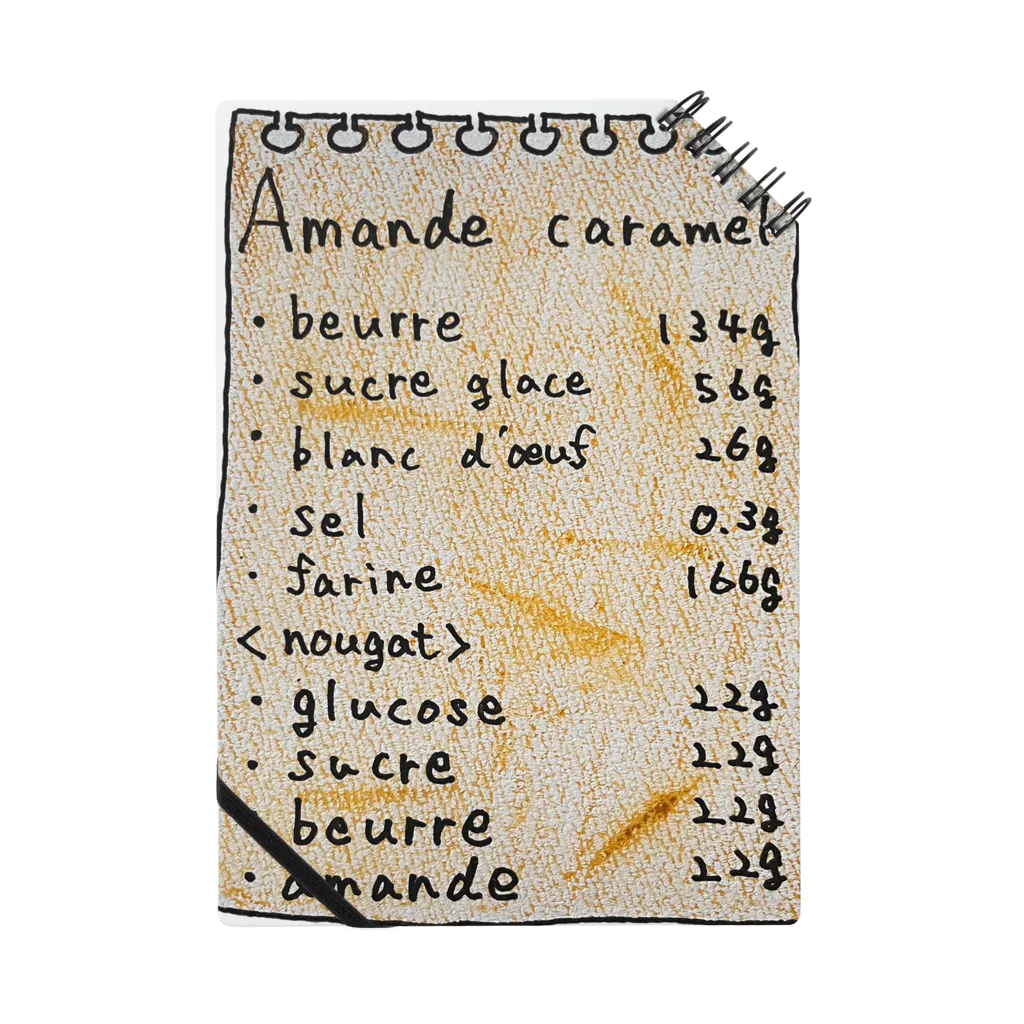 Amande caramel
· beurre 134g
· sucre glace 56g
· blanc d'œuf 26g
· sel 0.3g
· farine 166g
<nougat>
· glucose 22g
· sucre 22g
beurre 22g
· amande 22g